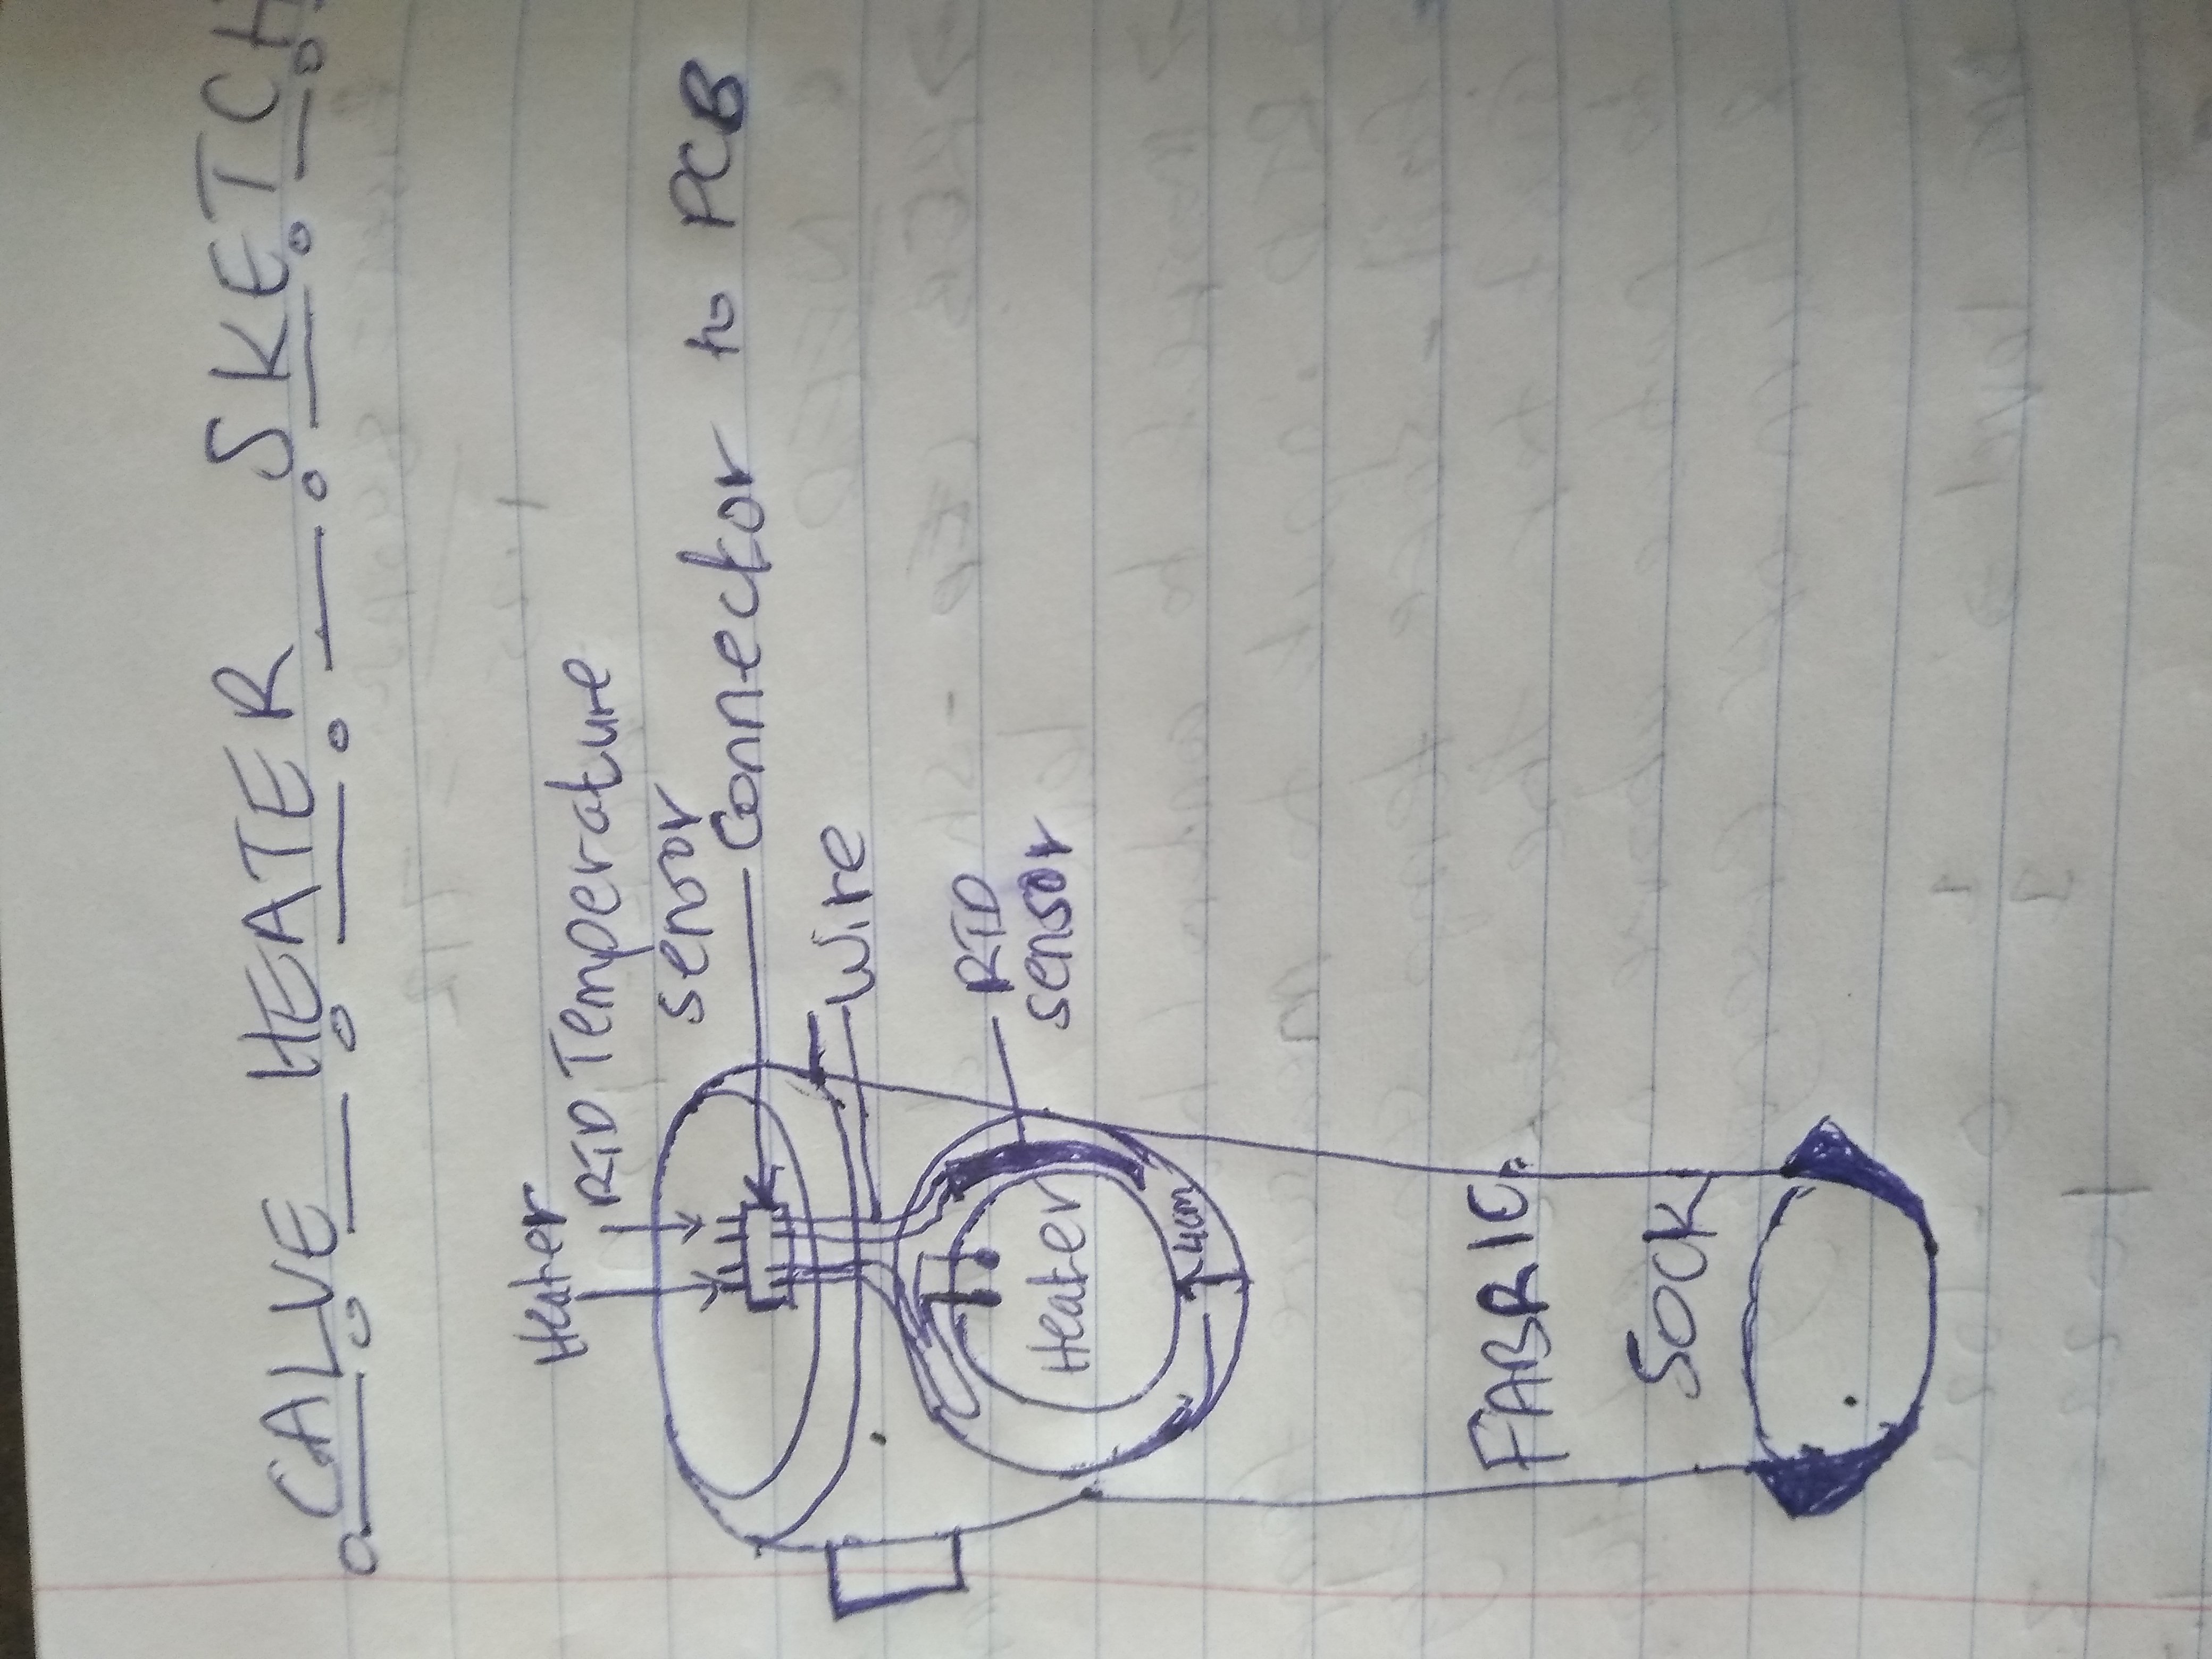 CALVE HEATER SKETCH
Heater
RTD Temperature
sensor
Connector to PCB
Wire
RTD
sensor
Heater
4cm
FABRIC
SOCK